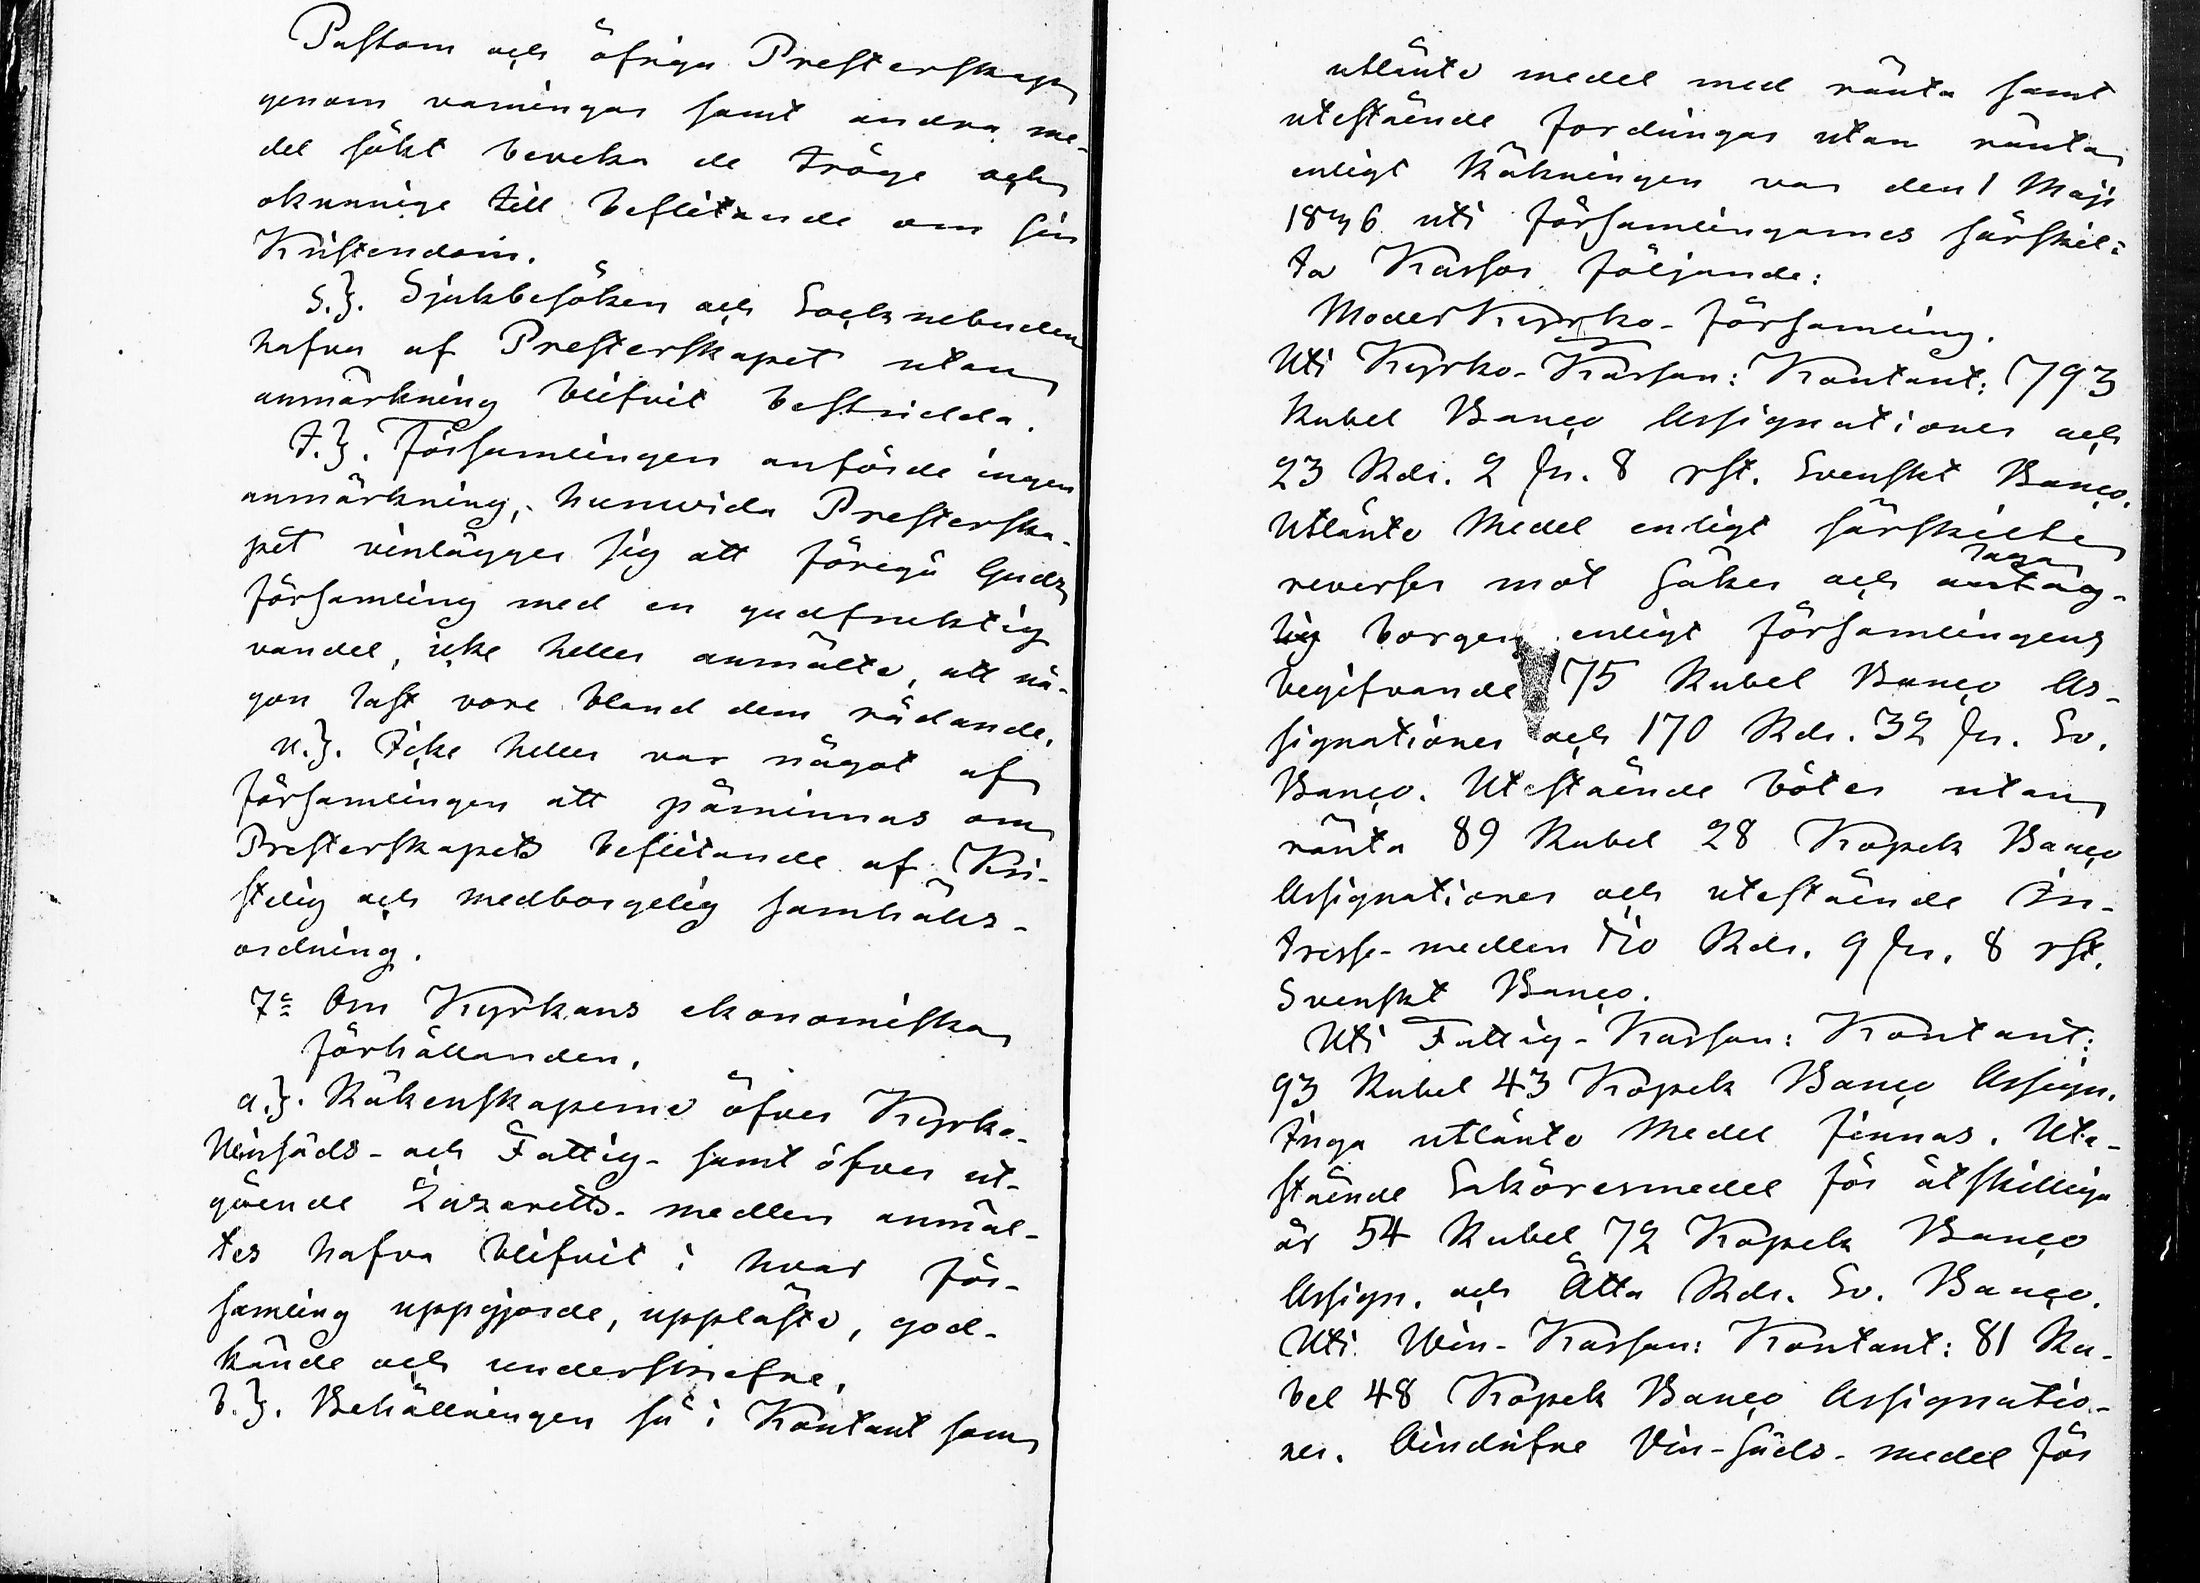 Pastorn och öfriga Presterskapet
genom varningar samt andra me-
del sökt beveka de tröge och
okunnige till beflitande om sin
Kristendom.
s.). Sjukbesöken och Socknebuden
hafva af Presterskapet utan
anmärkning blifvit bestridda.
t.). Församlingen anförde ingen
anmärkning, huruvida Presterska-
pet vinlägger sig att föregå Guds
församling med en gudfruktig
vandel, icke heller anmälte, att nå-
gon last vore bland dem rådande.
u.). Icke heller var något af
församlingen att påminnas om
Presterskapets beflitande af Kri-
stelig och medborgelig samhäls-
ordning.
7o Om Kyrkans ekonomiska
förhållanden.
a.). Räkenskaperne öfver Kyrko-
Winsäds- och Fattig- samt öfver ut-
gående Lazaretts- medlen anmäl-
tes hafva blifvit i hvar för-
samling uppgjorde, uppläste, god-
kände och underskrefne.
b.). Behållningen så i Kontant som
utlånte medel med ränta samt
utestående fordringar utan ränta
enligt Räkningen var den 1 Maji
1836 uti församlingarnes särskil-
ta Kassor följande:
ModerKyrko- församling.
Uti Kyrko- Kassan: Kontant: 793
Rubel Banco Assignationer och
23 Rdr. 2 sr. 8 rst. Svenskt Banco.
Utlånte Medel enligt särskilte
laga
reverser mot säker och antag-
lig borgen enligt församlingens
begifvande 75 Rubel Banco As-
signationer och 170 Rdr. 32 sr. Sv.
Banco. Utestående böter utan
ränta 89 Rubel 28 Kopek Banco
Assignationer och utestående In-
tresse- medlen tio Rdr. 9 sr. 8 rst.
Svenskt Banco.
Uti Fattig- Kassan: Kontant:
93 Rubel 43 Kopek Banco Assign.
Inga utlånte Medel finnas. Ute-
stående Saköresmedel för åtskilliga
år 54 Rubel 72 Kopek Banco
Assign. och Åtta Rdr. Sv. Banco.
Uti Win- Kassan: Kontant: 81 Ru-
bel 48 Kopek Banco Assignatio-
ner. Oindrifne Vin-säds- medel för